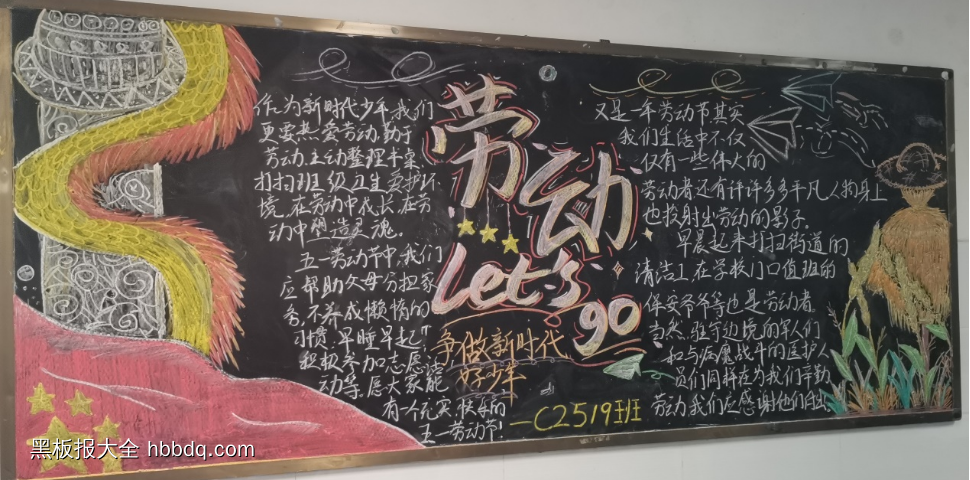 作为新时代少年,我们
更要热爱劳动,勤于
劳动,主动整理书桌
打扫班级卫生,爱护环
境,在劳动中成长,在劳
动中塑造灵魂。
五一劳动节中,我们
应帮助父母分担家
务,不养成懒惰的
习惯,早睡早起,
积极参加志愿活
动等,愿大家能
有一个充实,快乐的
五一劳动节!
劳动
Let's
go
争做新时代
好少年
—C2519班
又是一年劳动节其实
我们生活中不仅
仅有一些伟大的
劳动者还有许许多多平凡人物身上
也投射出劳动的影子。
早晨起来打扫街道的
清洁工,在学校门口值班的
保安爷爷等也是劳动者
当然,驻守边境的军人们
和与病魔战斗的医护人
员们同样在为我们辛勤
劳动,我们应感谢他们
黑板报大全 hbbdq.com